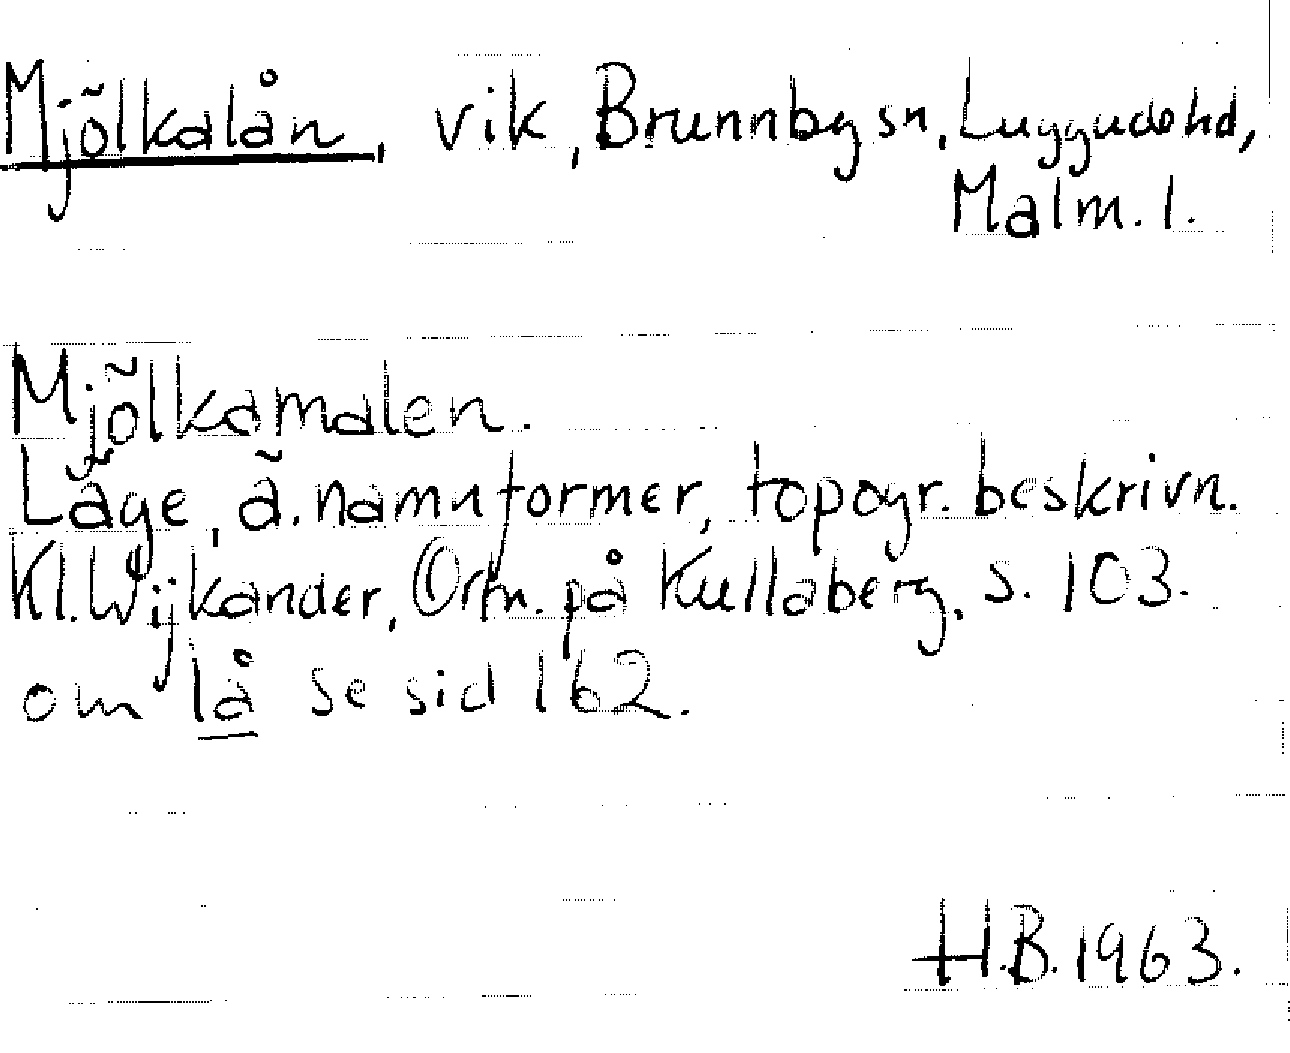 Mjölkalån, vik, Brunnby sn, Luggude hd,
Malm. l.
Mjölkamalen.
Läge, ä. namnformer, topogr. beskrivn.
Kl. Wijkander, Ortn. på Kullaberg, s. 103.
om lå se sid 162.
H.B. 1963.